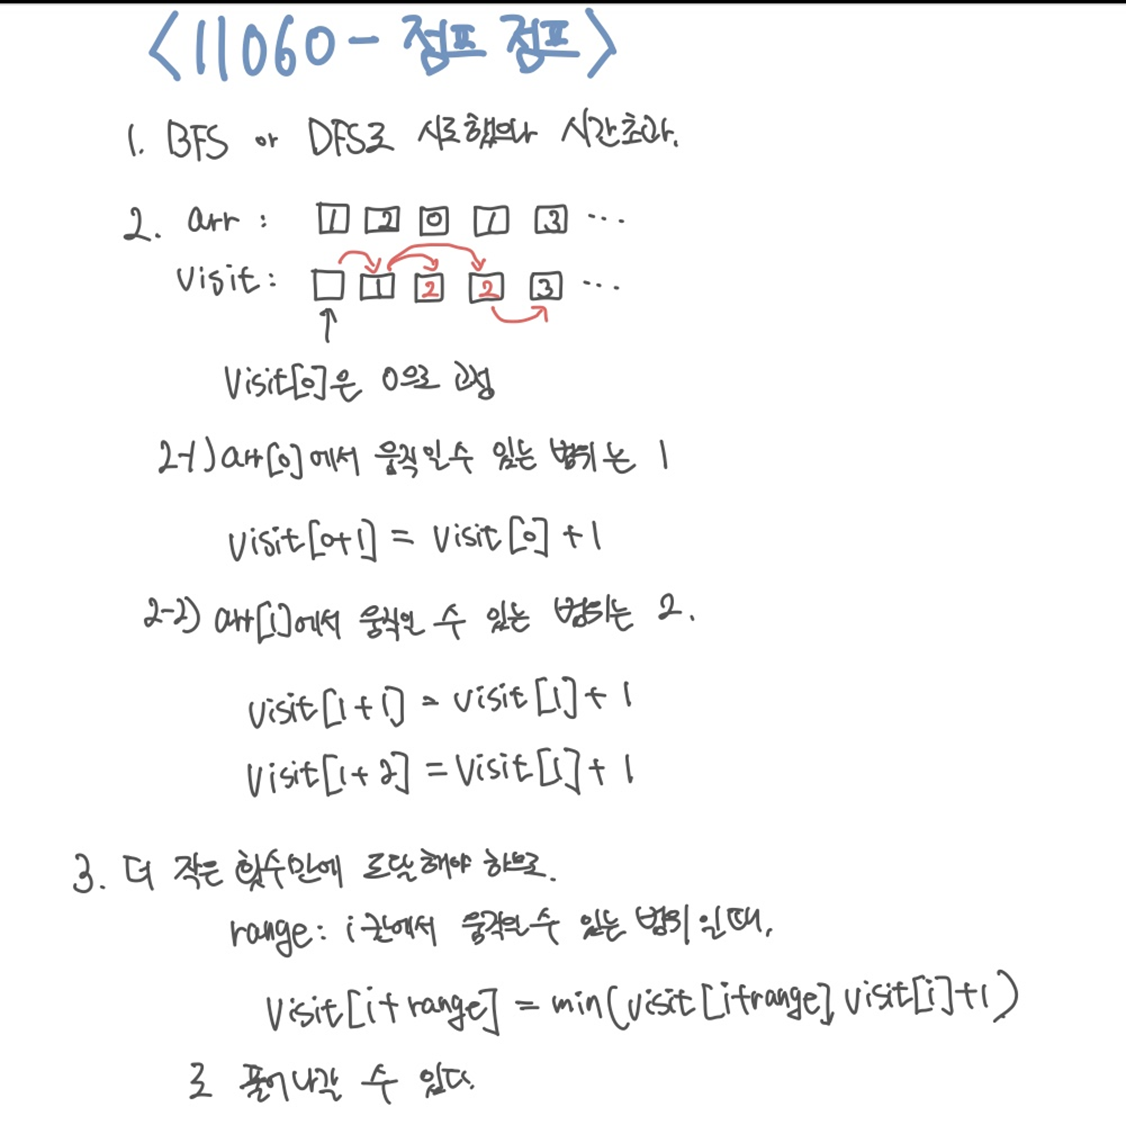 <11060 - 점프 점프>
1. BFS or DFS로 시도했으나 시간초과.
2. arr : 1 2 0 1 3 ...
visit : 1 2 2 3 ...
visit[0]은 0으로 고정
2-1) arr[0]에서 움직일 수 있는 범위는 1
visit[0+1] = visit[0] + 1
2-2) arr[1]에서 움직일 수 있는 범위는 2.
visit[1+1] = visit[1] + 1
visit[1+2] = visit[1] + 1
3. 더 작은 횟수만에 도달해야 하므로.
range: i칸에서 움직일 수 있는 범위 일때,
visit[i+range] = min(visit[i+range], visit[i]+1)
로 풀어나갈 수 있다.